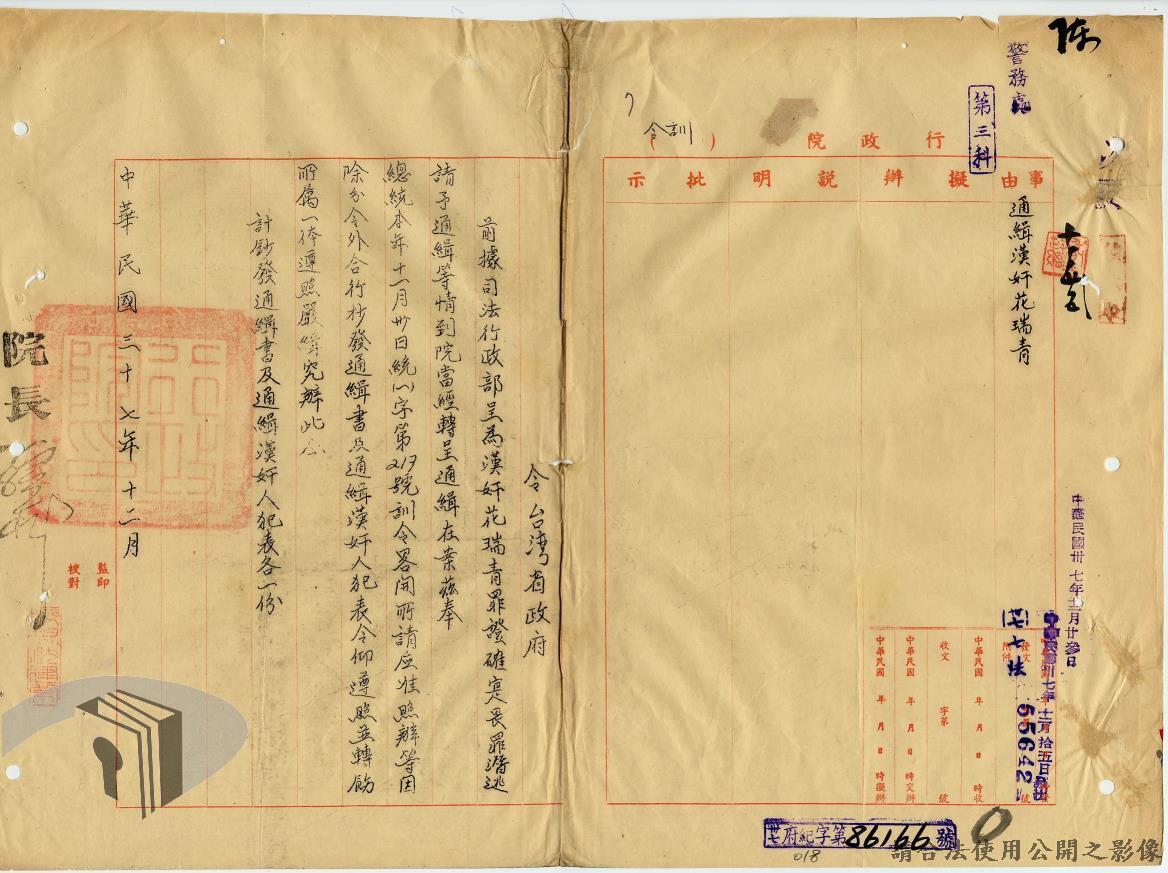 警務處
第三科
行政院(訓令)
事由
擬辦
說明
批示
通緝漢奸花瑞青
中華民國卅七年十二月廿參日
中華民國卅七年十二月拾五日
發文
附件
卅七七法
55642
號
中華民國 年 月 日 時收
收文 字第 號
中華民國 年 月 日 時交辦
中華民國 年 月 日 時擬辦
卅七府紀字第86166號
018
令台湾省政府
前據司法行政部呈為漢奸花瑞青罪證確寔畏罪潛逃
請予通緝等情到院當經轉呈通緝在案茲奉
總統本年十一月卅日統(一)字第219號訓令畧開所請应准照辦等因
除分令外合行抄發通緝書及通緝漢奸人犯表令仰遵照並轉飭
所属一体遵照嚴緝究辦此令
計鈔發通緝書及通緝漢奸人犯表各一份
中華民國三十七年十二月
院長
監印
校對
請合法使用公開之影像